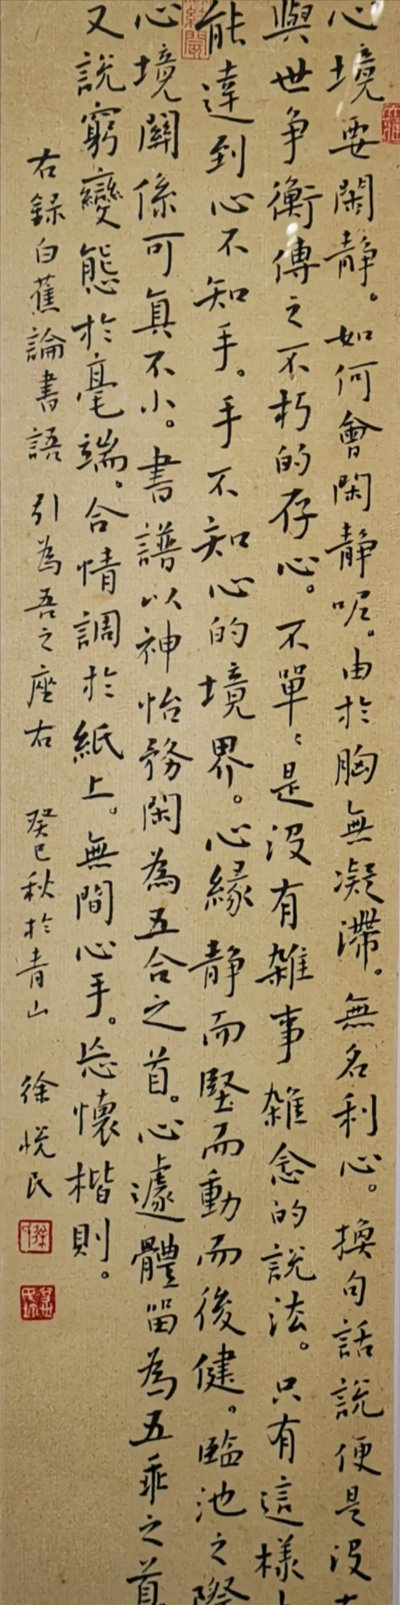 心境要閑静。如何會閑静呢。由於胸無凝滯。無名利心。換句話說便是没
與世争衡傳之不朽的存心。不單是没有雜事雜念的說法。只有這樣
能達到心不知手。手不知心的境界。心緣静而堅而動而後健。臨池之際
心境關係可真不小。書譜以神怡務閑為五合之首。心遽體留為五乖之首
又說窮變態於毫端。合情調於紙上。無間心手。忘懷楷則。
右録白蕉論書語 引為吾之座右 癸巳秋於青山 徐悦民